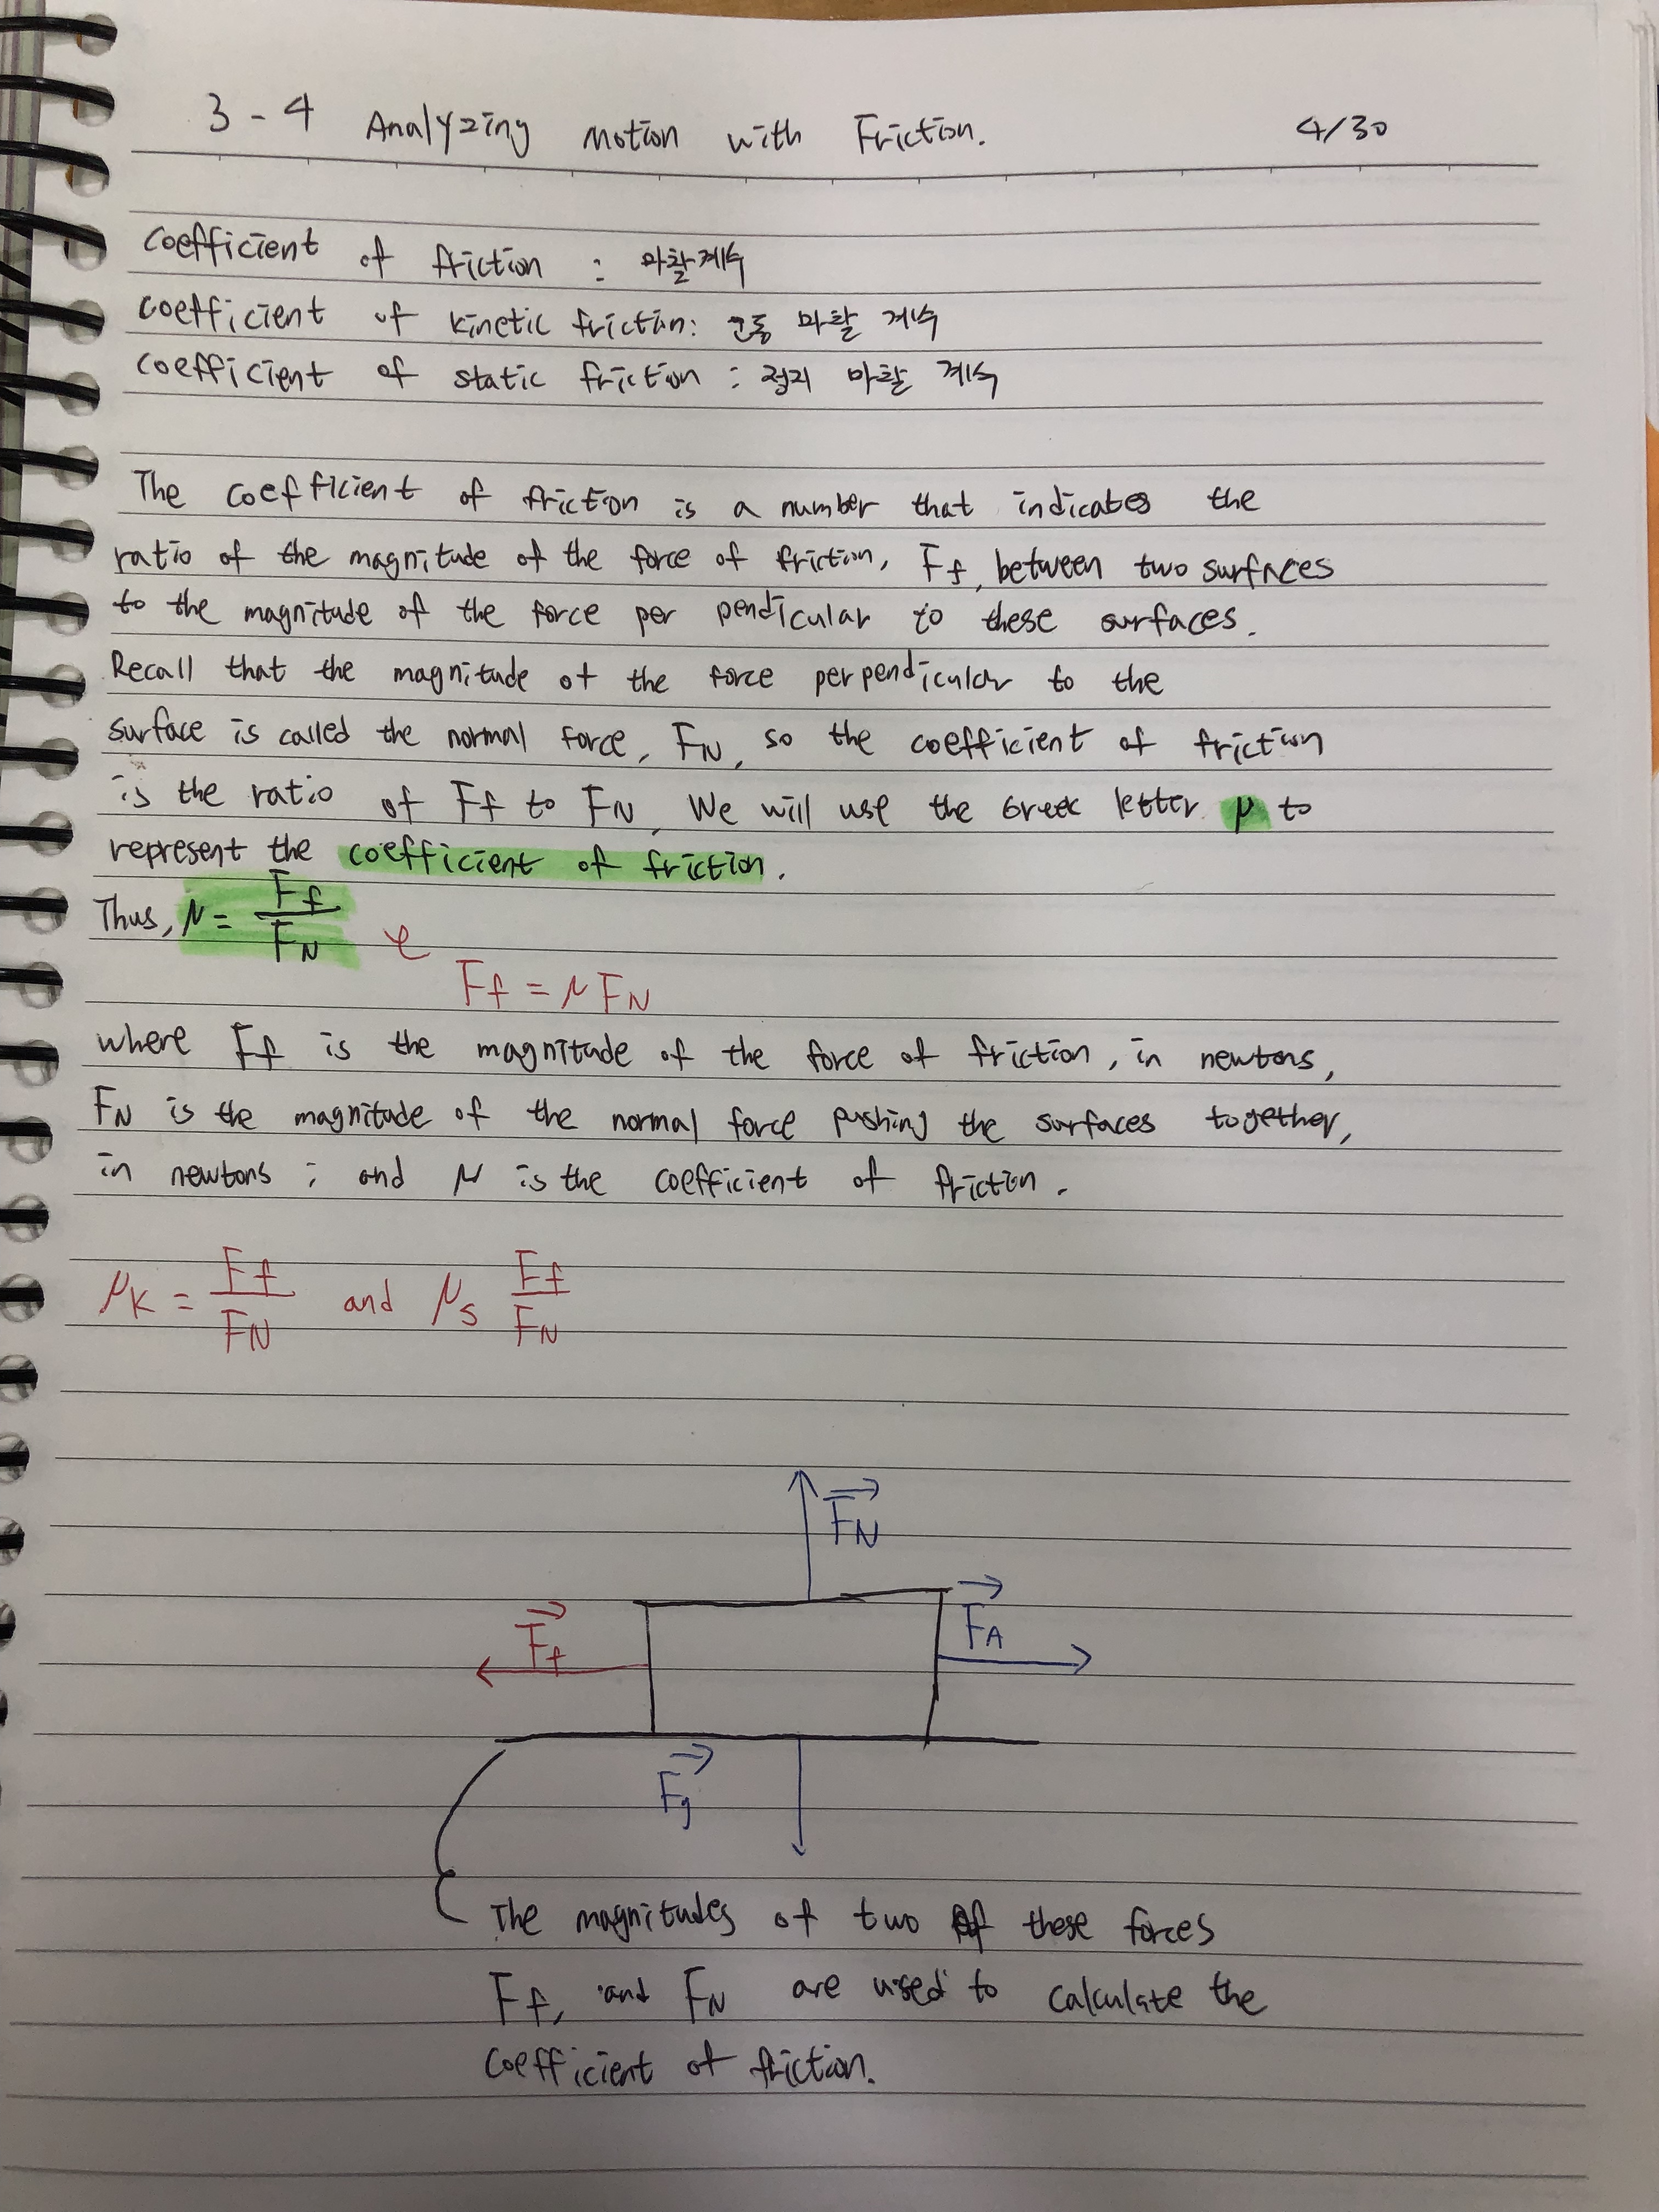 3-4 Analyzing Motion with Friction. 4/30
coefficient of friction : 마찰계수
coefficient of kinetic friction: 운동 마찰 계수
coefficient of static friction : 정지 마찰 계수
The coefficient of friction is a number that indicates the
ratio of the magnitude of the force of friction, Ff, between two surfaces
to the magnitude of the force per pendicular to these surfaces.
Recall that the magnitude of the force perpendicular to the
surface is called the normal force, FN, so the coefficient of friction
is the ratio of Ff to FN. We will use the Greek letter μ to
represent the coefficient of friction.
Thus, μ = Ff/FN
Ff = μFN
where Ff is the magnitude of the force of friction, in newtons,
FN is the magnitude of the normal force pushing the surfaces together,
in newtons ; and μ is the coefficient of friction.
μK = Ff/FN and μs Ff/FN
FN
FA
Ff
Fg
The magnitudes of two of these forces
Ff, and FN are used to calculate the
coefficient of friction.